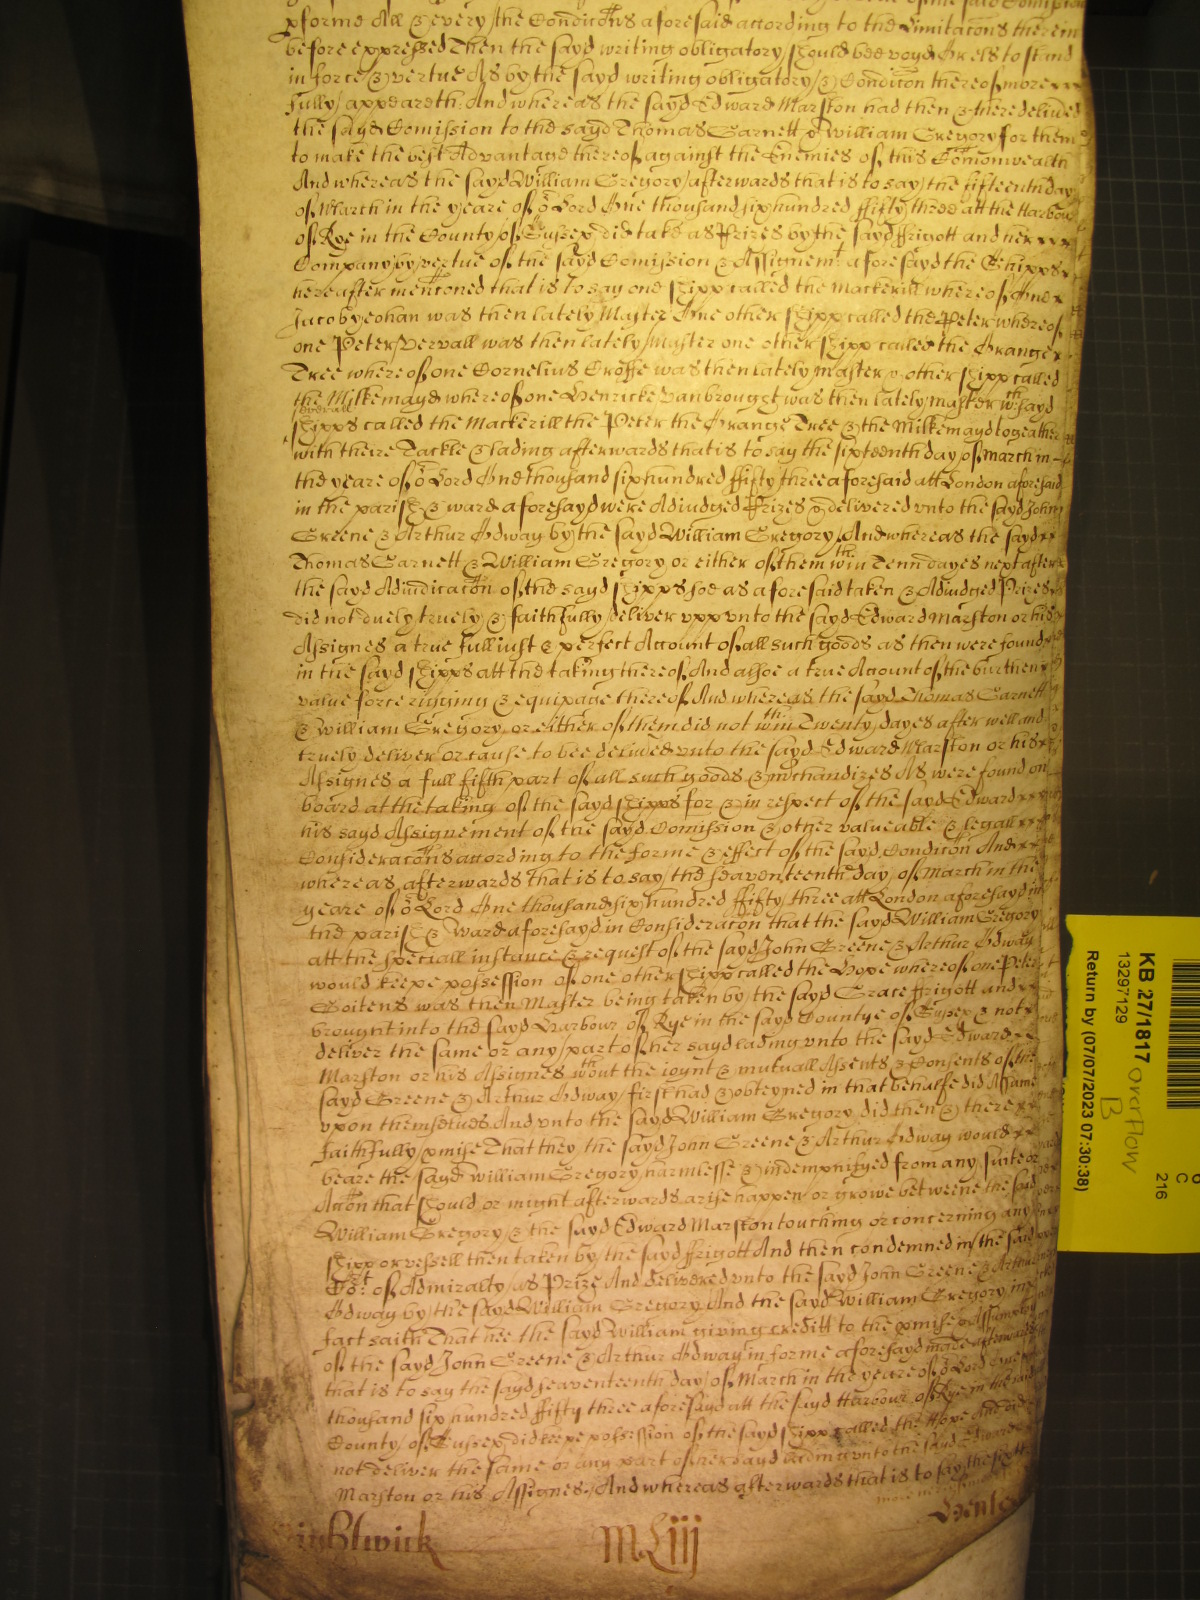 pforme All & every the Condicõns aforesaid according to the Limitacõns therein
before expressed Then the sayd writing obligatory should bee voyd Or els to stand
in force & vertue As by the sayd writing obligatory & Condicõn thereof more
fully appeareth. And whereas the sayd Edward Marston had then & there delived
the sayd Comission to the sayd Thomas Garnett & William Gregory for them
to make the best Advantage thereof against the Enemies of this Comonwealth
And whereas the sayd William Gregory afterwards that is to say the fifteenth day
of March in the yeare of or Lord One thousand six hundred fifty three att the Harbour
of Rye in the County of Sussex did take as Prizes by the sayd ffrigott and her
Company by vertue of the sayd Comission & Assignemt aforesayd the Shipps
hereafter mencõned that is to say one Shipp called the Mackerill whereof One
Jacob yeohan was then lately Master One other Shipp called the Peter whereof
one Peter Vervall was then lately Master one other Shipp called the Orange
Tree whereof one Cornelius Croffe was then lately master & other Shipp called
the Milkemayd whereof one Henricke Vanbrougg was then lately master wch sayd
severall
Shipps called the Mackerill the Peter the Orange Tree & the Milkemayd togeather
with theire Tackle & lading afterwards that is to say the sixteenth day of March in
the yeare of or Lord One thousand six hundred ffifty three aforesaid att London aforesaid
in the parish & ward aforesayd were Adiudged Prizes & delivered unto the sayd John
Greene & Arthur Odway by the sayd William Gregory And whereas the sayd
Thomas Garnett & William Gregory or either of them wthin Tenn dayes next after
the sayd Adiudicacõn of the sayd Shipps soe as aforesaid taken & Adiudged Prizes
did not duely truely & faithfully deliver upp unto the sayd Edward Marston or his
Assignes a true full iust & perfect Account of all such goods as then were found
in the sayd Shipps att the taking thereof And alsoe a true Account of the burthen
value force rigging & equipage thereof And whereas the sayd Thomas Garnett
& William Gregory or either of them did not wthin Twenty dayes after well and
truely deliver or cause to bee delived unto the sayd Edward Marston or his
Assignes a full fifth part of all such goods & mchandizes As were found on
board at the taking of the sayd Shipps for & in respect of the sayd Edward
his sayd Assignement of the sayd Comission & other valueable & legall
Consideracõns according to the forme & effect of the sayd Condicõn And
whereas afterwards that is to say the seaventeenth day of March in the
yeare of or Lord One thousand six hundred ffifty three att London aforesayd in
the parish & Ward aforesayd in Consideracõn that the sayd William Gregory
att the speciall instance & request of the sayd John Greene & Arthur Odway
would keepe possession of one other Shipp called the Hope whereof one Peter
Goitens was then Master being taken by the sayd Grace ffrigott and
brought into the sayd Harbour of Rye in the sayd Countye of Sussex & not
deliver the same or any part of her sayd lading unto the sayd Edward
Marston or his Assignes wthout the ioynt & mutuall Assents & Consents of the
sayd Greene & Arthur Odway first had & obteyned in that behalfe did Assume
upon themselves And unto the sayd William Gregory did then & there
faithfully pmise That they the sayd John Greene & Arthur Odway would
beare the sayd William Gregory harmelesse & indempnifyed from any suite or
Accõn that should or might afterwards arise happen or growe betweene the said
William Gregory & the sayd Edward Marston touching or concerning any
Shipp or vessell then taken by the sayd ffrigott And then condemned in the said
Cort of Admiralty as Prize And delivered unto the sayd John Greene & Arthur
Odway by the sayd William Gregory And the sayd William Gregory in
fact saith That hee the sayd William giving creditt to the pmise & Assumpcõn
of the sayd John Greene & Arthur Odway in forme aforesayd made afterwards
that is to say the sayd seaventeenth day of March in the yeare of or Lord One
thousand six hundred ffifty three aforesayd att the sayd Harbour of Rye in the said
County of Sussex did keepe possession of the sayd Shipp called the Hope And did
not deliver the same or any part of her sayd lading unto the sayd Edward
Marston or his Assignes. And whereas afterwards that is to say the sixth
MLiij
KB 27/1817 overflow
13297129
B
Return by (07/07/2023 07:30:38)
C
216